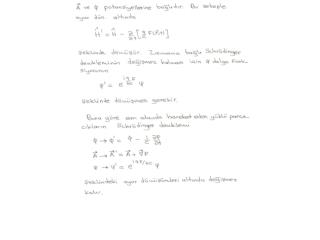 A⃗ ve φ potansiyellerine bağlıdır. Bu sebeple
ayar dön. altında
Ĥ' = Ĥ - ∂/∂t [q/c F(r⃗,t)]
şeklinde dönüşür. Zamana bağlı Schrödinger
denkleminin değişmez kalması için ψ dalga fonk-
siyonunun
ψ' = e ψ
şeklinde dönüşmesi gerekir.
Buna göre em alanda hareket eden yüklü parça-
cıkların Schrödinger denklemi
φ → φ' = φ - 1/c ∂F/∂t
A⃗ → A⃗' = A⃗ + ∇⃗F
ψ → ψ' = e^{iqF/ħc} ψ
şeklindeki ayar dönüşümleri altında değişmez
kalır.